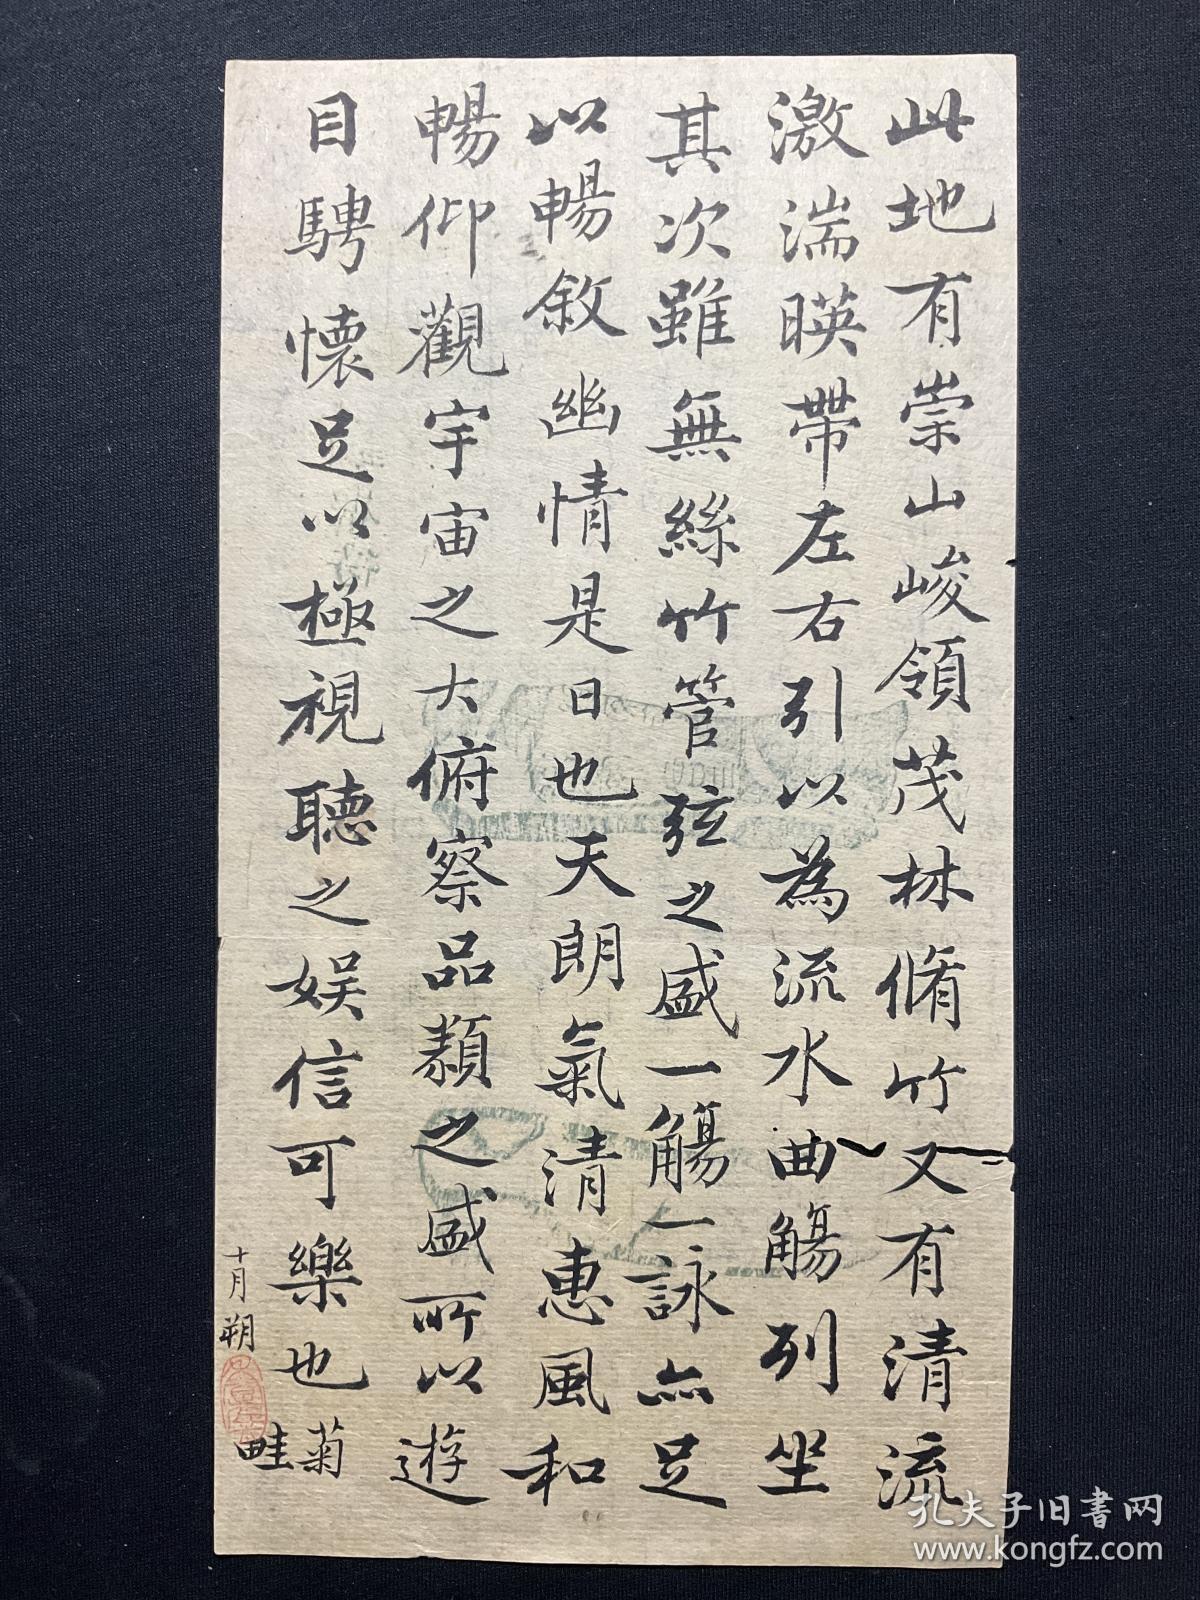 此地有崇山峻領茂林脩竹又有清流
激湍暎帶左右引以為流水曲觴列坐
其次雖無絲竹管弦之盛一觴一詠亦足
以暢敘幽情是日也天朗氣清惠風和
暢仰觀宇宙之大俯察品類之盛所以遊
目騁懷足以極視聽之娛信可樂也
菊
畦
十月朔
孔夫子旧書网
www.kongfz.com